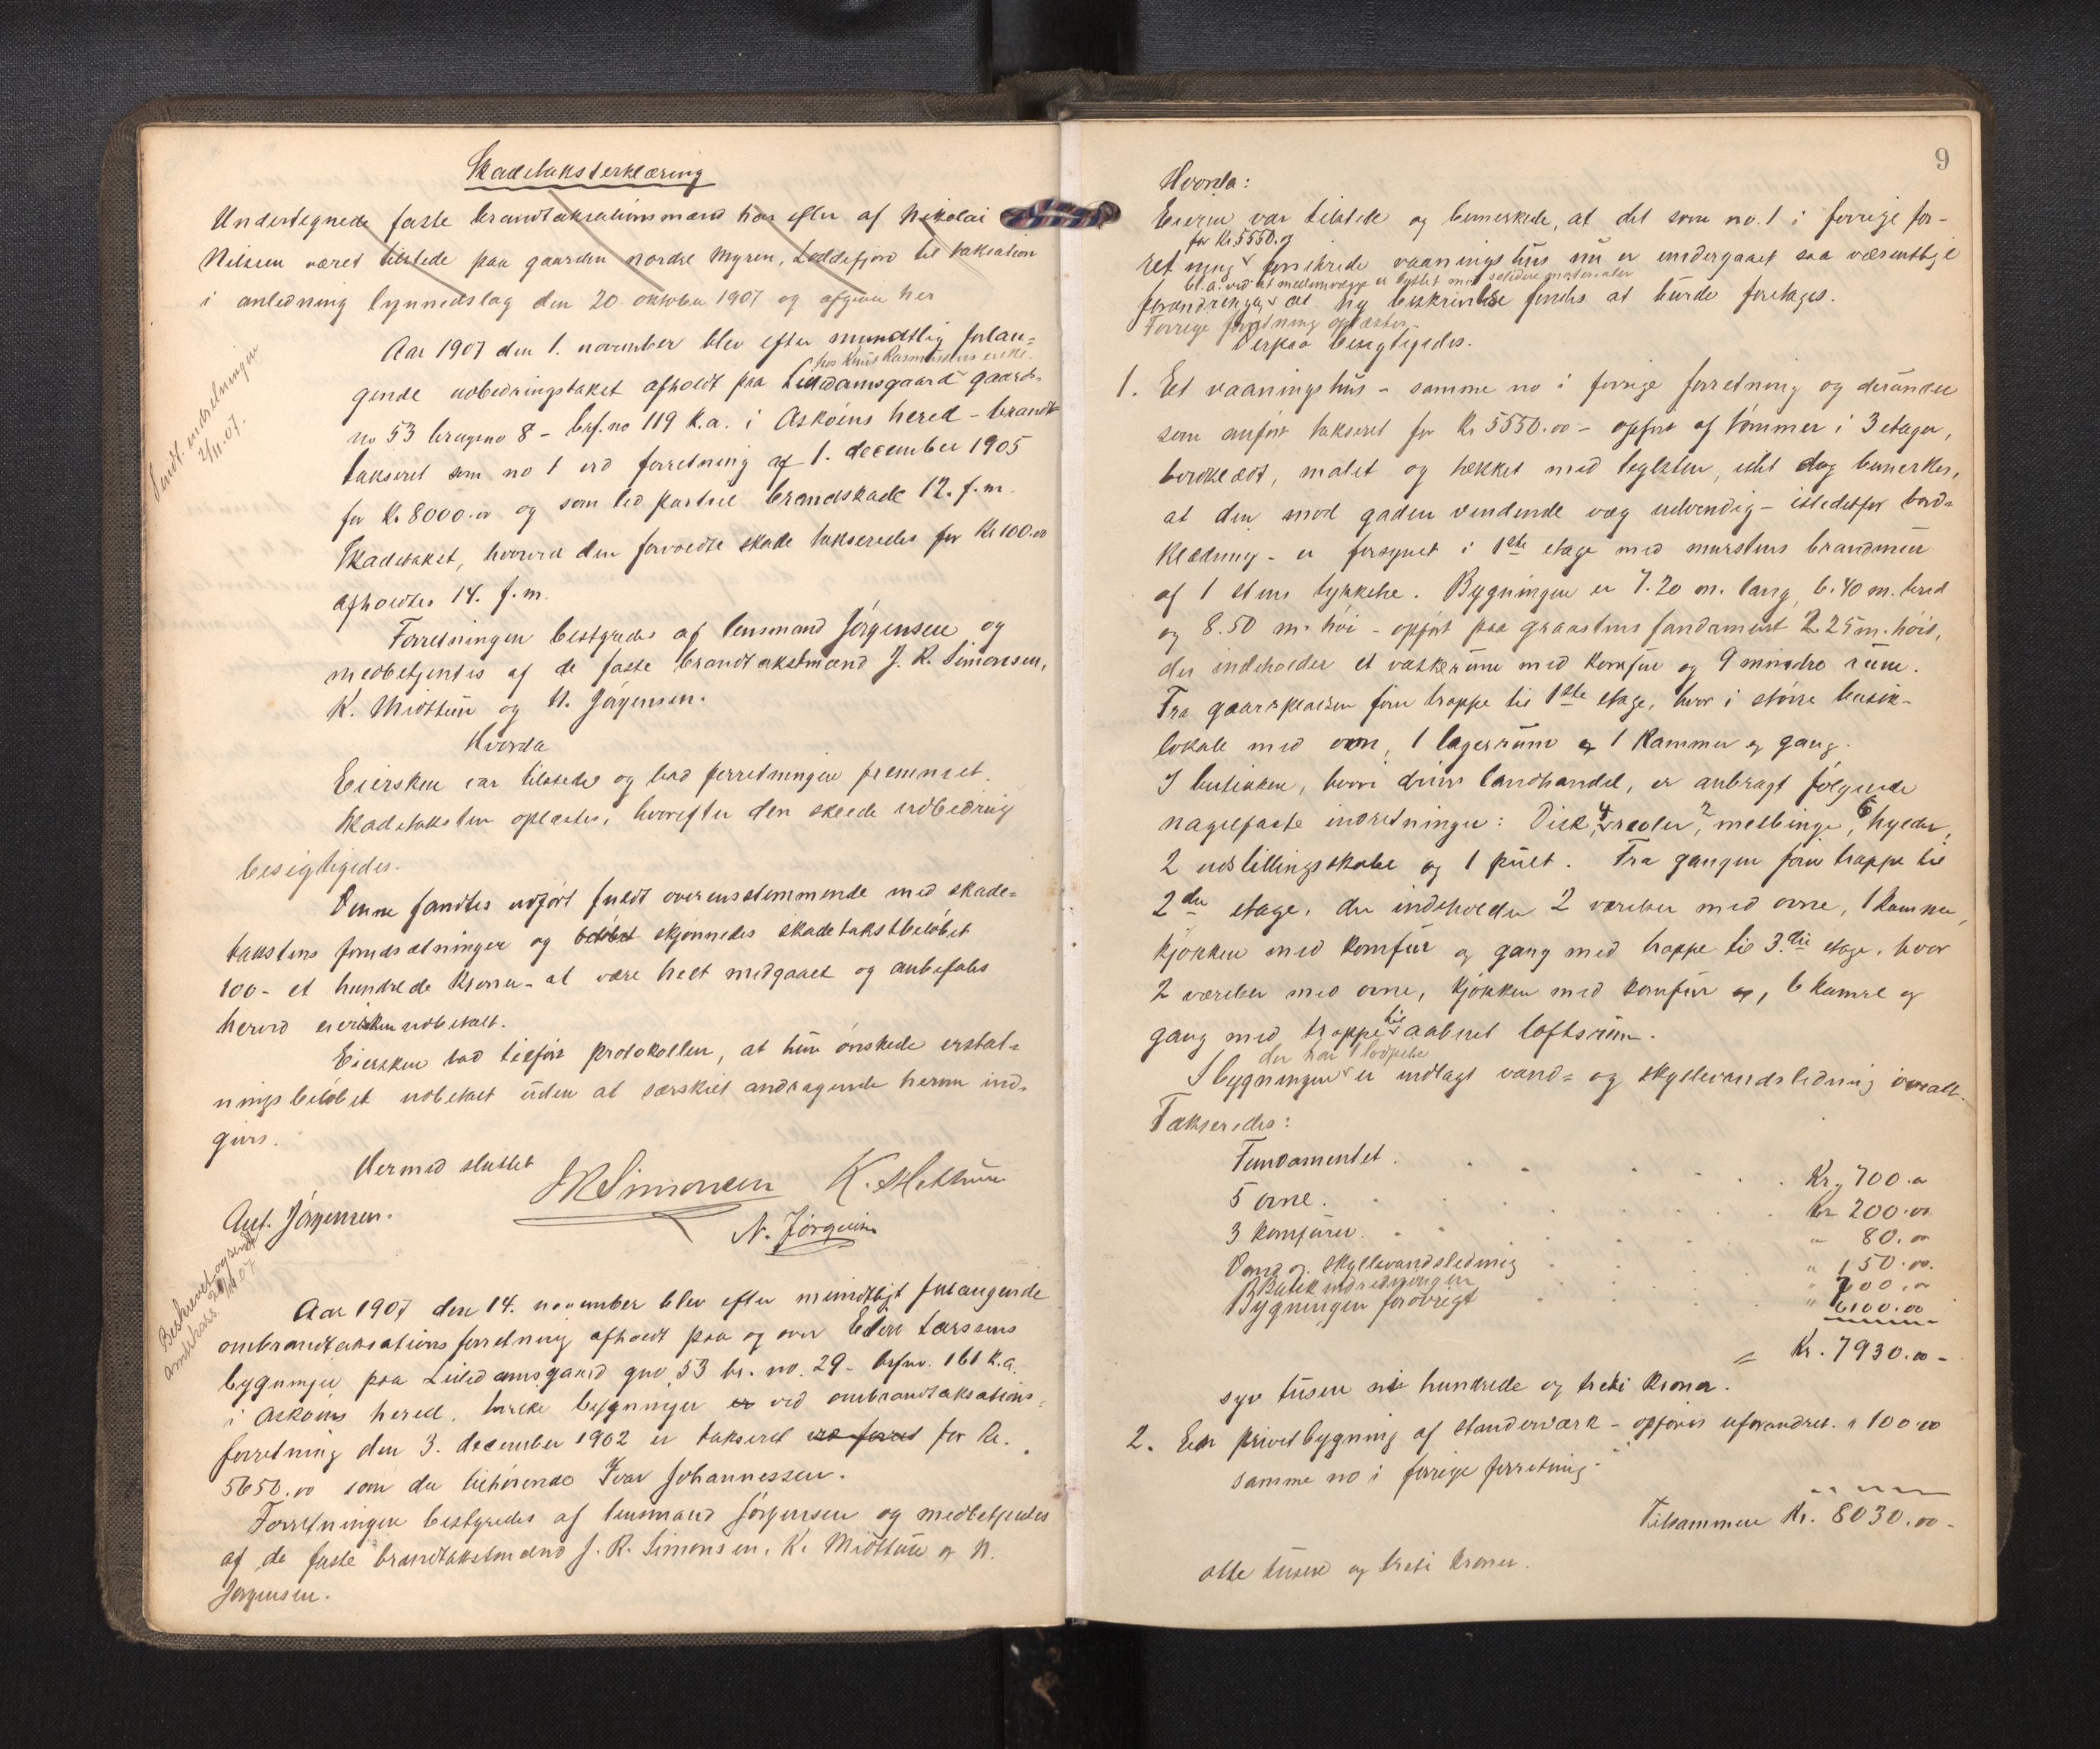 Skadetaksterklæring
Undertegnede faste brandtaksationsmænd har efter af Nikolai
Nilsen været tilstede paa gaarden nordre Myren, Loddefjord til taksation
i anledning lynnedslag den 20. oktober 1907 og afgiver her
Aar 1907 den 1. november blev efter mundtlig forlan-
hos Knut Rasmussens enke.
gende udbedringstakst afholdt paa Lilledamsgaard gaards-
no 53 brugsno 8 - brf. no 119 k.a. i Askøens hered - brandt
takseret som no 1 ved forretning af 1. december 1905
for Kr 8000.00 og som led partiel brandskade 12. f.m.
Skadetakst, hvorved den forvoldte skade takseredes for Kr 100.00
afholdtes 14. f.m.
Forretningen bestyredes af lensmand Jørgensen og
medbetjentes af de faste brandtakstmænd J. R. Simonsen,
K. Midttun og N. Jørgensen.
Hvorda
Eiersken var tilstede og bad forretningen fremmet.
Skadetaksten oplæstes, hvorefter den skeede udbedring
besigtigedes.
Denne fandtes udført fuldt overensstemmende med skade-
takstens forudsætninger og skjønnedes skadetakstbeløbet
100 - et hundrede kroner - at være helt medgaaet og anbefales
herved eiersken udbetalt.
Eiersken bad tilført protokollen, at hun ønskede erstat-
ningsbeløbet udbetalt uden at særskilt andragende herom ind-
gives.
Hermed sluttet
J R Simonsen K. Midttun
Ant. Jørgensen. N. Jørgensen
Sendt indretningen
2/11.07.
Beskrevet og sendt
amtskass. 20/11 07
Aar 1907 den 14. november blev efter mundtligt forlangende
ombrandtaksationsforretning afholdt paa og over Eder Larssens
bygninger paa Lilledamsgaard gno. 53 br. no. 29 - brfno. 161 k.a.
i Askøens hered, hvilke bygninger er ved ombrandtaksations-
forretning den 3. december 1902 er takseret for Kr.
5650.00 som da tilhørende Ivar Johannessen.
Forretningen bestyredes af lensmand Jørgensen og medbetjentes
af de faste brandtakstmænd J. R. Simonsen, K. Midttun og N.
Jørgensen.
9
Hvorda:
Eieren var tilstede og bemerkede, at det som no. 1 i forrige for-
for Kr 5550.00
retning forsikrede vaaningshus nu er undergaaet saa væsentlige
bl. a. ved at mellemvægge er byttet med solidere materialer
forandringer at ny beskrivelse fandtes at burde foretages.
Forrige forretning oplæstes.
Derpaa besigtigedes.
1. Et vaaningshus - samme no i forrige forretning og derunder
som anført takseret for Kr 5550.00 - opført af tømmer i 3 etager,
bordklædt, malet og tækket med teglsten, idet dog bemerkes,
at den mod gaden vendende væg udvendig - istedetfor bord-
klædning - er forsynet i 1ste etage med murstens brandmur
af 1 stens tykkelse. Bygningen er 7.20 m. lang, 6.40 m. bred
og 8.50 m. høi - opført paa graastens fundament 2.25 m. høit,
der indeholder et vaskerum med komfur og 9 mindre rum.
Fra gaardspladsen fører trappe til 1ste etage, hvor i større butik-
lokale med ovn, 1 lagerrum og 1 kammer og gang.
I butikken, hvori drives landhandel, er anbragt følgende
nagelfaste indretninger: Disk, 4 reoler, 2 melbinge, 6 hylder,
2 udstillingsskabe og 1 pult. Fra gangen fører trappe til
2den etage, der indeholder 2 værelser med ovne, 1 kammer,
kjøkken med komfur og gang med trappe til 3.die etage, hvor
2 værelser med ovne, kjøkken med komfur og, 6 kamre og
gang med trappe til aabent loftsrum.
der har 1 lodpibe
I bygningen er indlagt vand- og skyllevandsledning overalt.
Takseredes:
Fundamentet . . . . . . Kr. 700.00
5 ovne . . . . . . Kr 200.00
3 komfurer . . . . . " 80.00
Vand og skyllevandsledning . . . " 150.00.
Butikindredningen . . . " 700.00
Bygningen forøvrigt . . . " 6100.00
= Kr. 7930.00 -
syv tusen ni hundrede og treti kroner.
2. En privetbygning af stenderværk - opføres uforandret. " 100.00
samme no i forrige forretning -
Tilsammen Kr. 8030.00 -
otte tusen og treti kroner.